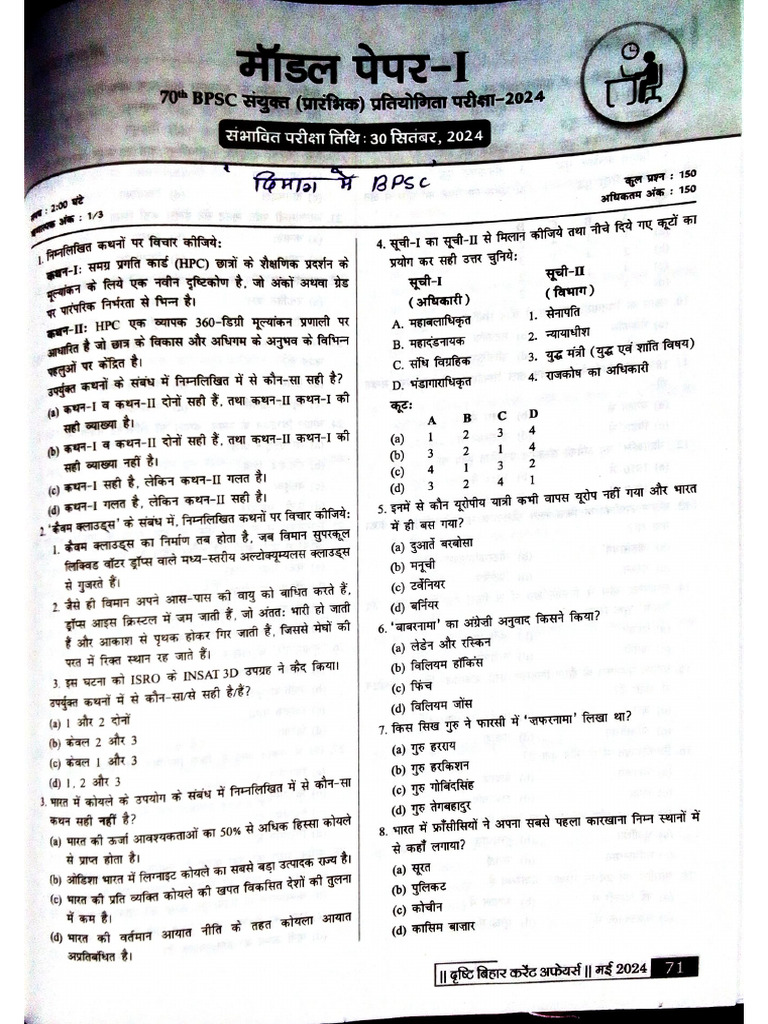 मॉडल पेपर-I
70th BPSC संयुक्त (प्रारंभिक) प्रतियोगिता परीक्षा-2024
संभावित परीक्षा तिथि: 30 सितंबर, 2024
दिमाग मे BPSC
: 2:00 घंटे
अंक : 1/3
कुल प्रश्न : 150
अधिकतम अंक : 150
1. निम्नलिखित कथनों पर विचार कीजिये:
कथन-I: समग्र प्रगति कार्ड (HPC) छात्रों के शैक्षणिक प्रदर्शन के
मूल्यांकन के लिये एक नवीन दृष्टिकोण है, जो अंकों अथवा ग्रेड
पर पारंपरिक निर्भरता से भिन्न है।
कथन-II: HPC एक व्यापक 360-डिग्री मूल्यांकन प्रणाली पर
आधारित है जो छात्र के विकास और अधिगम के अनुभव के विभिन्न
पहलुओं पर केंद्रित है।
उपर्युक्त कथनों के संबंध में निम्नलिखित में से कौन-सा सही है?
(a) कथन-I व कथन-II दोनों सही हैं, तथा कथन-II कथन-I की
सही व्याख्या है।
(b) कथन-I व कथन-II दोनों सही हैं, तथा कथन-II कथन-I की
सही व्याख्या नहीं है।
(c) कथन-I सही है, लेकिन कथन-II गलत है।
(d) कथन-I गलत है, लेकिन कथन-II सही है।
2. 'कैवम क्लाउड्स' के संबंध में, निम्नलिखित कथनों पर विचार कीजिये:
1. कैवम क्लाउड्स का निर्माण तब होता है, जब विमान सुपरकूल
लिक्विड वॉटर ड्रॉप्स वाले मध्य-स्तरीय अल्टोक्यूम्यलस क्लाउड्स
से गुजरते हैं।
2. जैसे ही विमान अपने आस-पास की वायु को बाधित करते हैं,
ड्रॉप्स आइस क्रिस्टल में जम जाती हैं, जो अंततः भारी हो जाती
हैं और आकाश से पृथक होकर गिर जाती हैं, जिससे मेघों की
परत में रिक्त स्थान रह जाते हैं।
3. इस घटना को ISRO के INSAT 3D उपग्रह ने कैद किया।
उपर्युक्त कथनों में से कौन-सा/से सही है/हैं?
(a) 1 और 2 दोनों
(b) केवल 2 और 3
(c) केवल 1 और 3
(d) 1, 2 और 3
3. भारत में कोयले के उपयोग के संबंध में निम्नलिखित में से कौन-सा
कथन सही नहीं है?
(a) भारत की ऊर्जा आवश्यकताओं का 50% से अधिक हिस्सा कोयले
से प्राप्त होता है।
(b) ओडिशा भारत में लिग्नाइट कोयले का सबसे बड़ा उत्पादक राज्य है।
(c) भारत की प्रति व्यक्ति कोयले की खपत विकसित देशों की तुलना
में कम है।
(d) भारत की वर्तमान आयात नीति के तहत कोयला आयात
अप्रतिबंधित है।
4. सूची-I का सूची-II से मिलान कीजिये तथा नीचे दिये गए कूटों का
प्रयोग कर सही उत्तर चुनिये:
सूची-I सूची-II
(अधिकारी) (विभाग)
A. महाबलाधिकृत 1. सेनापति
B. महादंडनायक 2. न्यायाधीश
C. संधि विग्रहिक 3. युद्ध मंत्री (युद्ध एवं शांति विषय)
D. भंडागाराधिकृत 4. राजकोष का अधिकारी
कूट:
A B C D
(a) 1 2 3 4
(b) 3 2 1 4
(c) 4 1 3 2
(d) 3 2 4 1
5. इनमें से कौन यूरोपीय यात्री कभी वापस यूरोप नहीं गया और भारत
में ही बस गया?
(a) दुआर्ते बरबोसा
(b) मनूची
(c) टर्वेनियर
(d) बर्नियर
6. 'बाबरनामा' का अंग्रेज़ी अनुवाद किसने किया?
(a) लेडेन और रस्किन
(b) विलियम हॉकिंस
(c) फिंच
(d) विलियम जोंस
7. किस सिख गुरु ने फारसी में 'ज़फरनामा' लिखा था?
(a) गुरु हरराय
(b) गुरु हरकिशन
(c) गुरु गोबिंदसिंह
(d) गुरु तेगबहादुर
8. भारत में फ्राँसीसियों ने अपना सबसे पहला कारखाना निम्न स्थानों में
से कहाँ लगाया?
(a) सूरत
(b) पुलिकट
(c) कोचीन
(d) कासिम बाज़ार
|| दृष्टि बिहार करेंट अफेयर्स || मई 2024 71